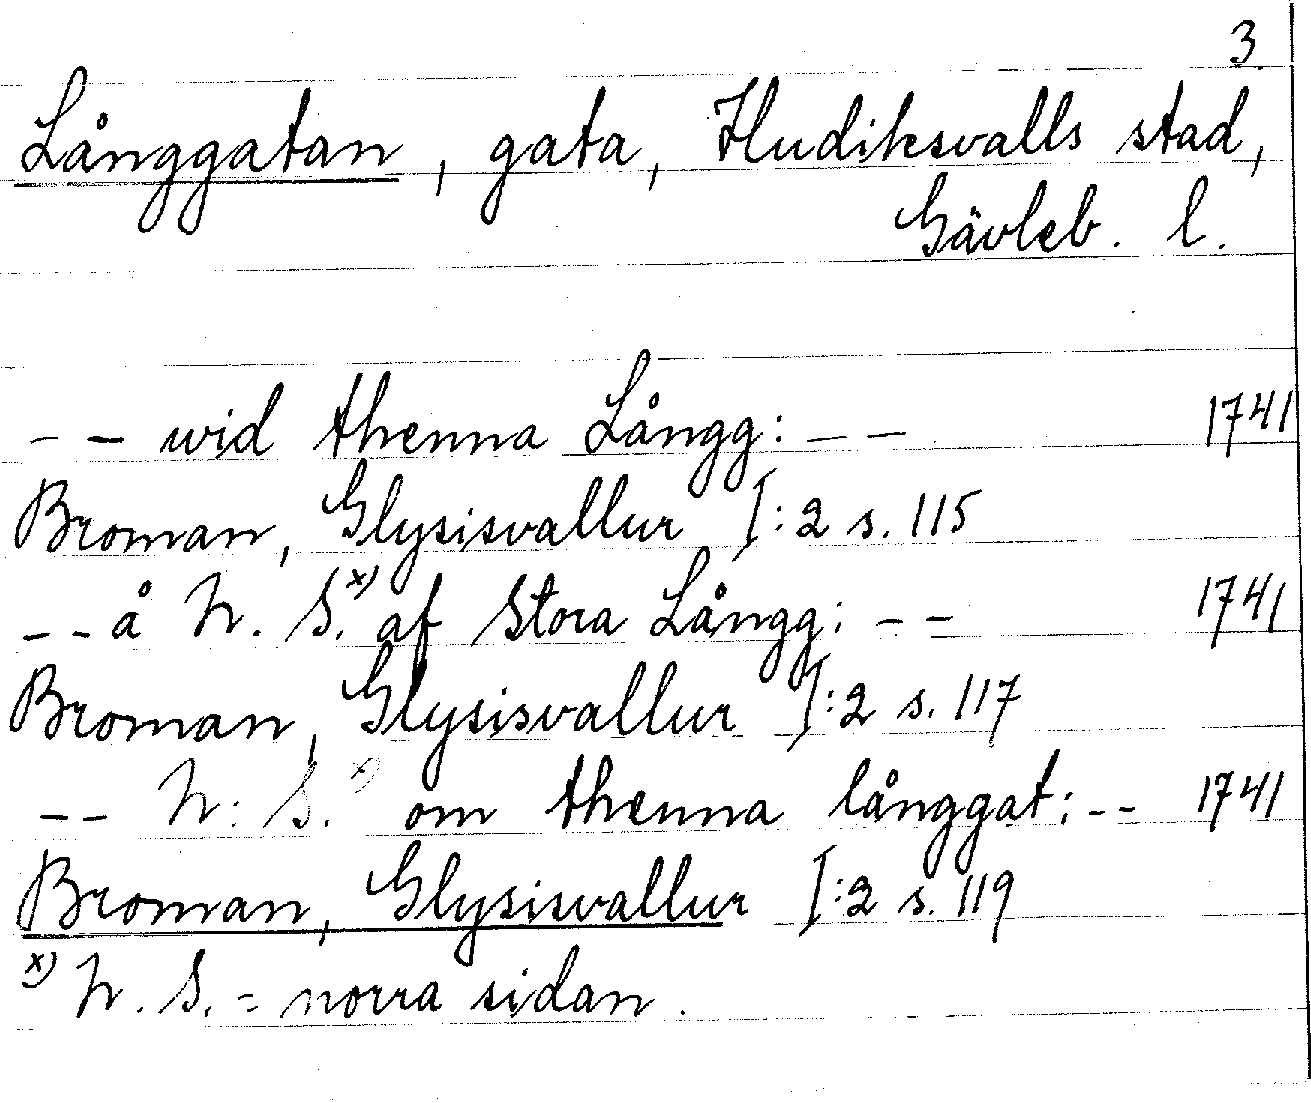 3.
Långgatan, gata, Hudiksvalls stad,
Gävleb. l.
-- wid thenna Långg: -- 1741
Broman, Glysisvallur I:2 s. 115
-- å N. S.x) af Stora Långg: -- 1741
Broman, Glysisvallur I:2 s. 117
-- N: S.x) om thenna långgat: -- 1741
Broman, Glysisvallur I:2 s. 119
x) N. S. = norra sidan.